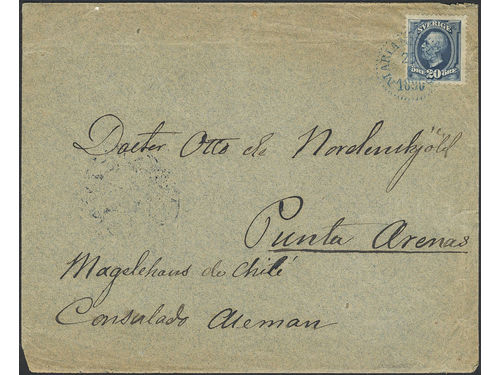 SVERIGE
ÖRE 20 ÖRE
1896
Docter Otto de Nordenskjöld
Punta Arenas
Magelehaus de Chilé
Consulado Aleman